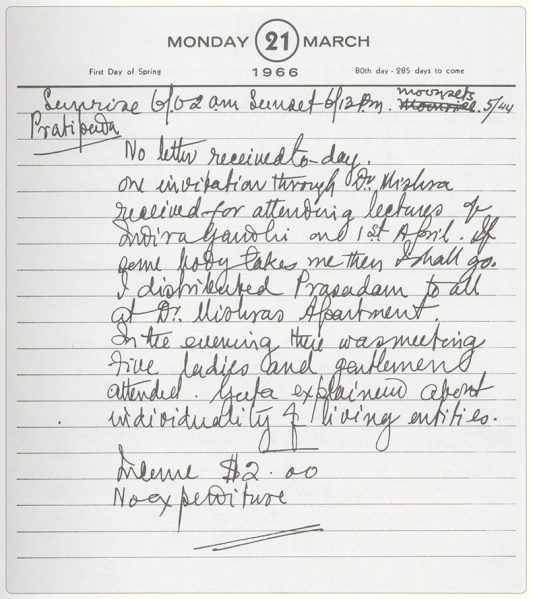 MONDAY 21 MARCH
First Day of Spring 1966 80th day - 285 days to come
Sunrise 6/02 am Sunset 6/12 P.m. moonsets Moonrise. 5/44
Pratipada
No letter received to-day.
one invitation through Dr. Mishra
received for attending lectures of
Indira Gandhi on 1st April. If
some body takes me then I shall go.
I distributed Prasadam to all
at Dr. Mishras Apartment.
In the evening there was meeting
five ladies and gentlemens
attended. Geeta explained about
individuality of living entities.
Income $2.00
No expenditure